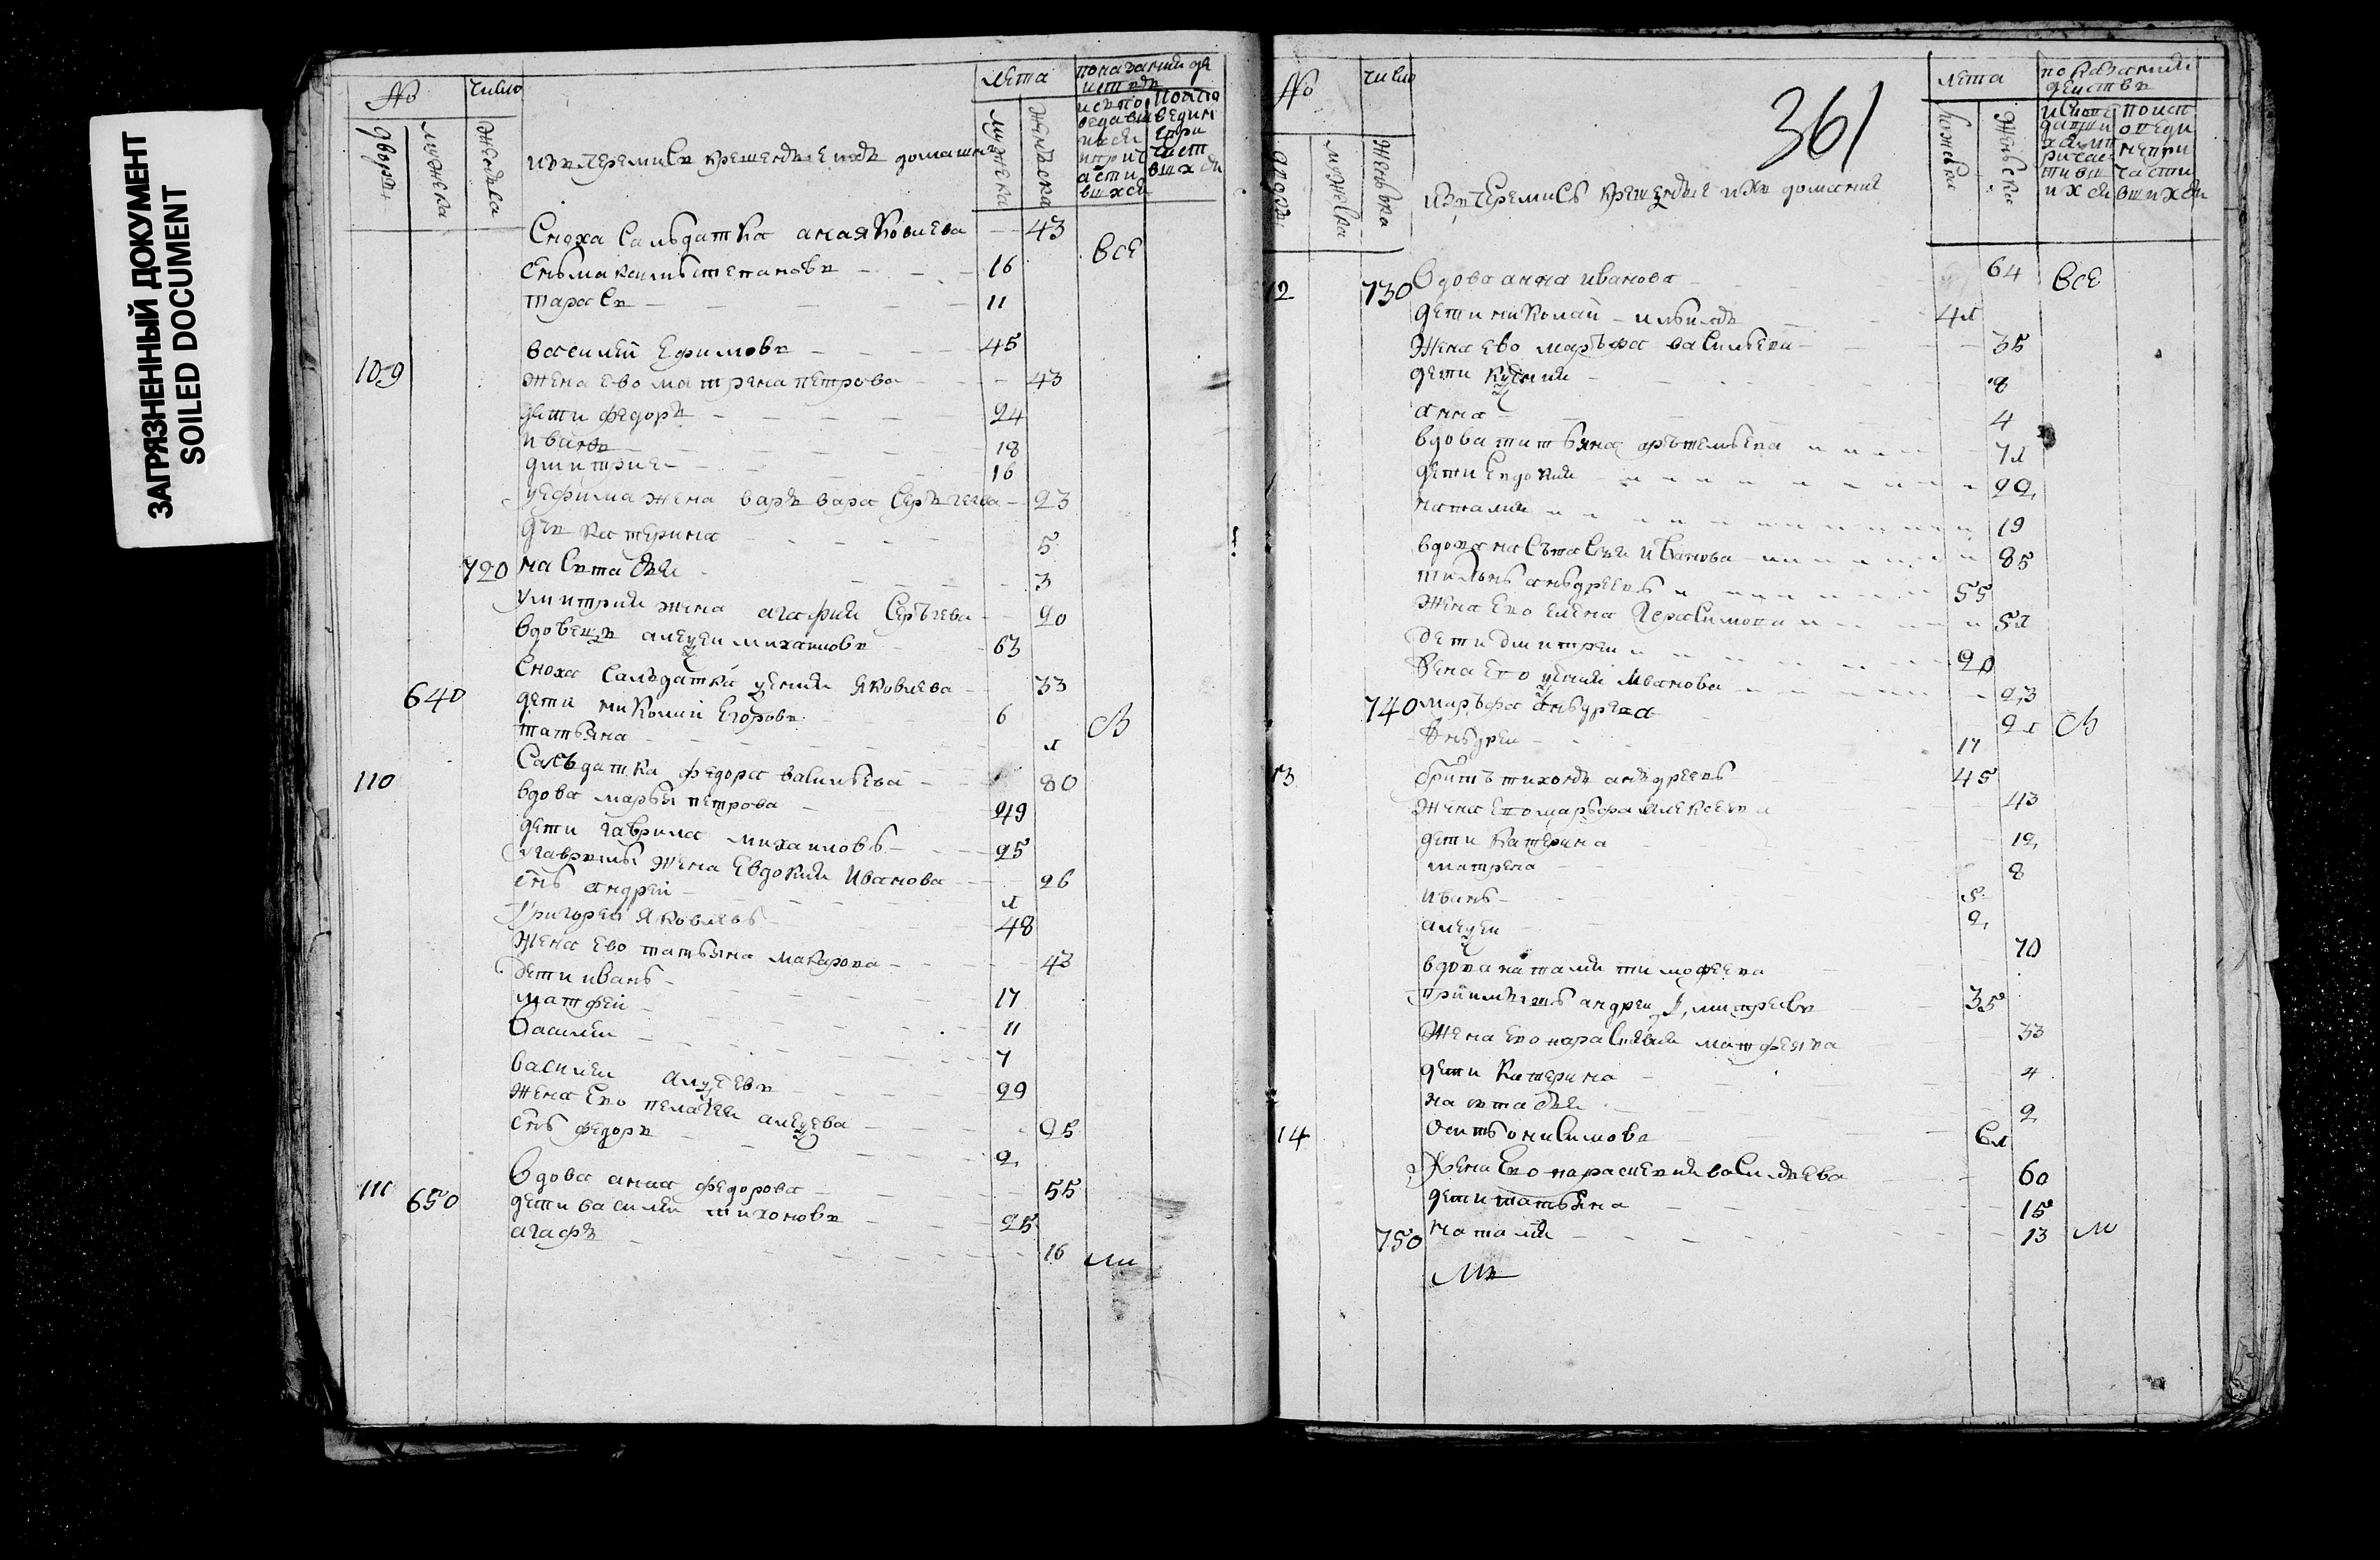 ЗАГРЯЗНЕННЫЙ ДОКУМЕНТ
SOILED DOCUMENT
№
число
лета
дворы
мужеска
женска
мужеска
женска
изъ черемисъ крещеные ихъ домашнии
Сноха Салъдатка анна Яковлева 43 всЕ
снъ макаимъ степановъ 16
тарасъ 11
109 василей Ефимовъ 45
жена Ево матрена петрова 43
дети федоръ 24
иванъ 18
дмитрие 16
уефима жена варъвара Сергѣева 23
дчь катерина 5
720 настасъя 3
умитрия жена агафия Сергъева 20
вдовецъ алеѯеи михаиловъ 63
Сноха Салъдатка ѯения Яковлева 33
640 дети николай Егоровъ 6
татьяна 1 В
110 Салъдатка федора василъева 80
вдова марья петрова 49
дети гаврила михаиловъ 25
угаврилы жена Евдокия Иванова 26
снъ андрей 1
григореи Яковлевъ 48
жена Ево татьяна макарова 43
дети иванъ 17
матфеи 11
василеи 7
василеи алеѯеевъ 29
жена Ево пелагея алеѯева 25
снъ федоръ 2
111 вдова анна федорова 55
650 дети василеи тихоновъ 25
агафъ 16
№
число
361
лета
показании
действъ
дворы
мужеска
женска
мужеска
женска
изъ черемисъ крещеные ихъ домашние
12 730 вдова анна иванова 64 всЕ
дети николай илъинъ 41
жена Ево маръфа василъева 35
дети Ксения 8
анна 4
вдова татьяна 71
дети Евдокия 22
наталия 19
вдова настасъя иванова 85
тихонъ анъдреевъ 55
жена Ево елена герасимова 51
дети дмитреи 20
жена Ево ѯения Иванова 23
740 маръфа анъдреева 21 В
анъдреи 17
13 братъ тихонъ анъдреевъ 45
жена Ево маръфа алексеева 43
дети катерина 12
матрена 8
иванъ 5
алеѯеи 2
вдова наталия тимофеева 70
приимышъ андреи дмитревъ 35
жена Ево парасковия матфеева 33
дети катерина 4
настасъя 2
14 осипъ онисимовъ 61
жена Ево парасковия василъева 60
дети татьяна 15
750 наталия 13 м